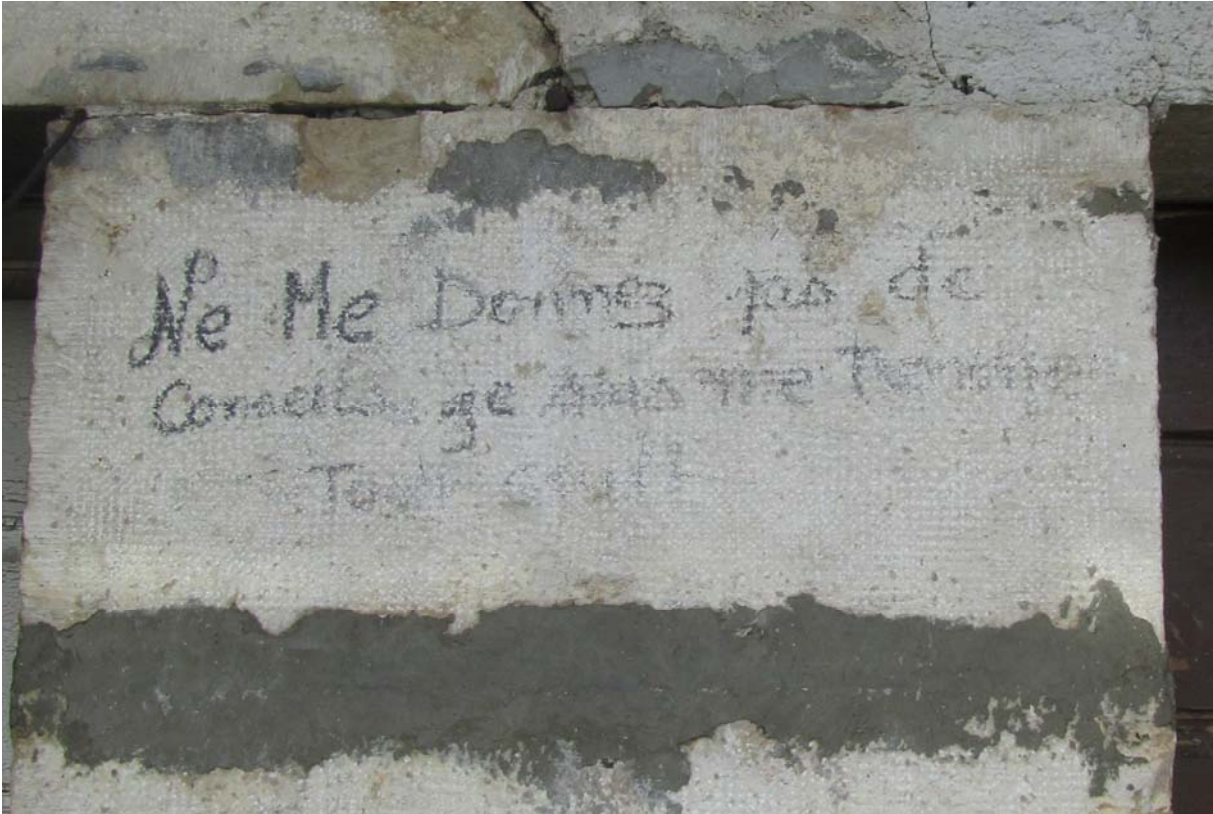 Ne Me Donnez pas de
Conseils, je sais me Tromper
Tout seul